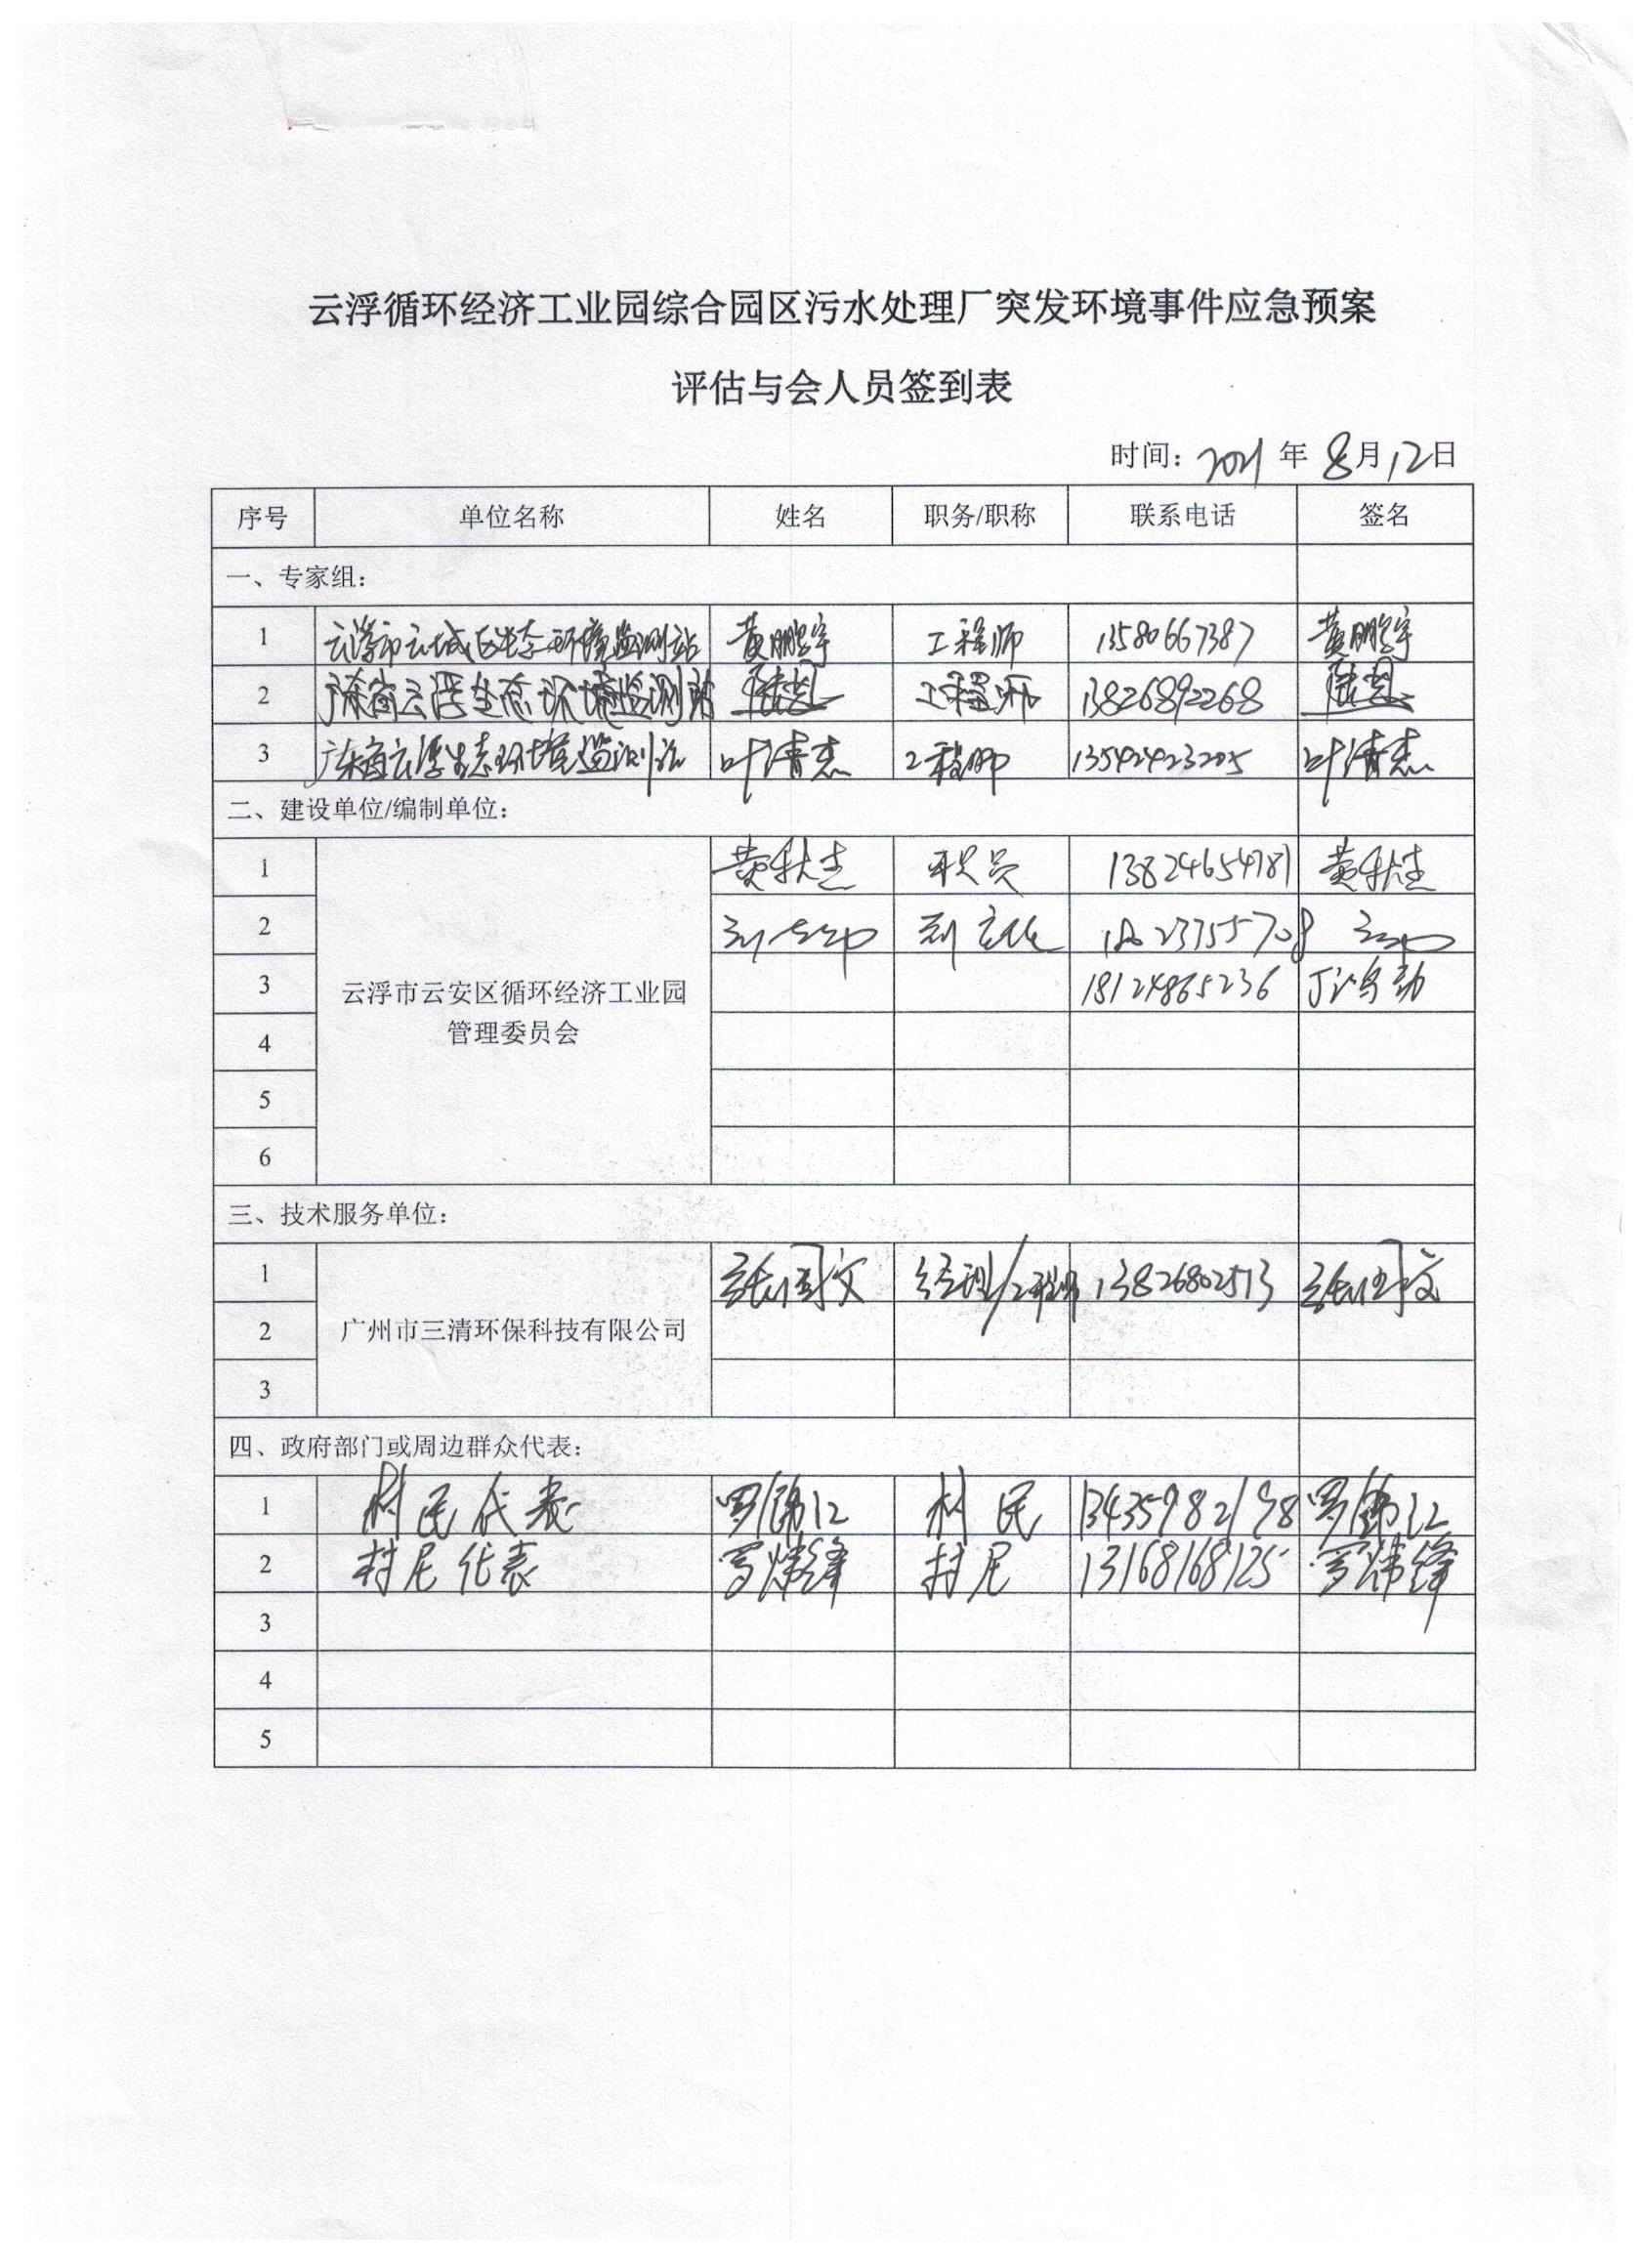 云浮循环经济工业园综合园区污水处理厂突发环境事件应急预案
评估与会人员签到表
时间：2021年8月12日
序号 单位名称 姓名 职务/职称 联系电话 签名
一、专家组：
1 云浮市云城区生态环境监测站 黄鹏宇 工程师 13580667387 黄鹏宇
2 广东省云浮生态环境监测站 工程师 13826892268
3 广东省云浮生态环境监测站 叶清杰 工程师 13542423205 叶清杰
二、建设单位/编制单位：
云浮市云安区循环经济工业园
管理委员会
1 职员 13824654781
2 副主任 18023755708
3 18124865236
4
5
6
三、技术服务单位：
1 张国文 经理/工程师 13826802513 张国文
2 广州市三清环保科技有限公司
3
四、政府部门或周边群众代表：
1 村民代表 村民 13435982198
2 村民代表 罗炜锋 村民 13168168125 罗炜锋
3
4
5